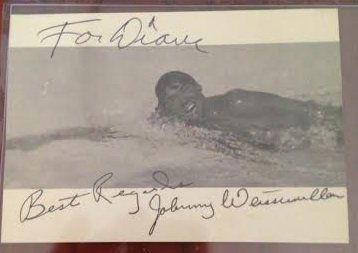 For Diane
Best Regards
Johnny Weissmuller